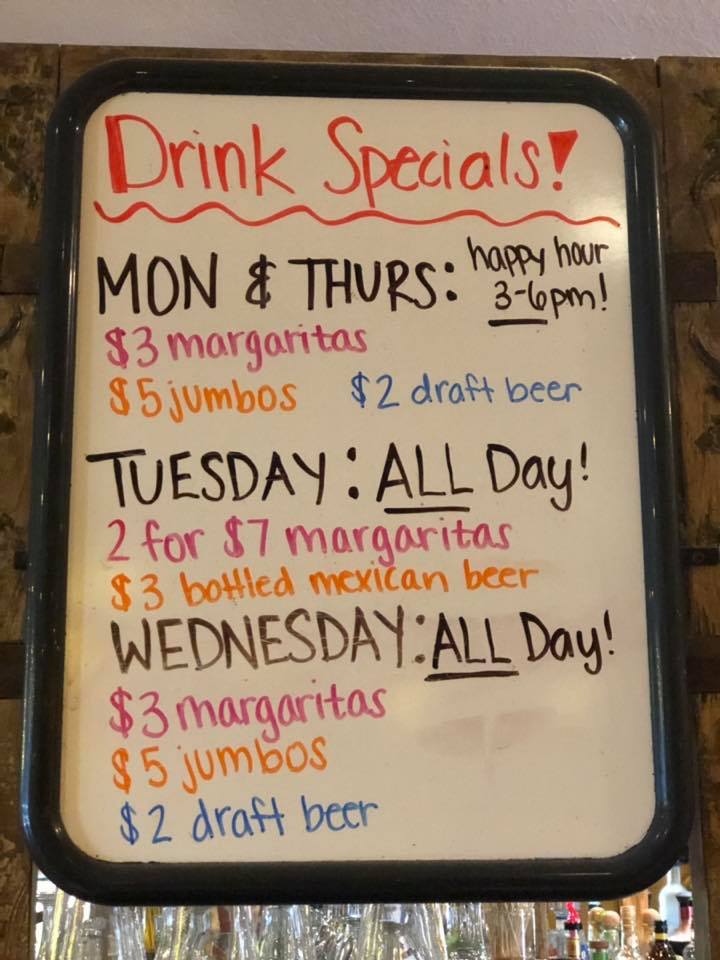 Drink Specials!
MON & THURS: happy hour 3-6pm!
$3 margaritas
$5 jumbos $2 draft beer
TUESDAY: ALL Day!
2 for $7 margaritas
$3 bottled mexican beer
WEDNESDAY: ALL Day!
$3 margaritas
$5 jumbos
$2 draft beer